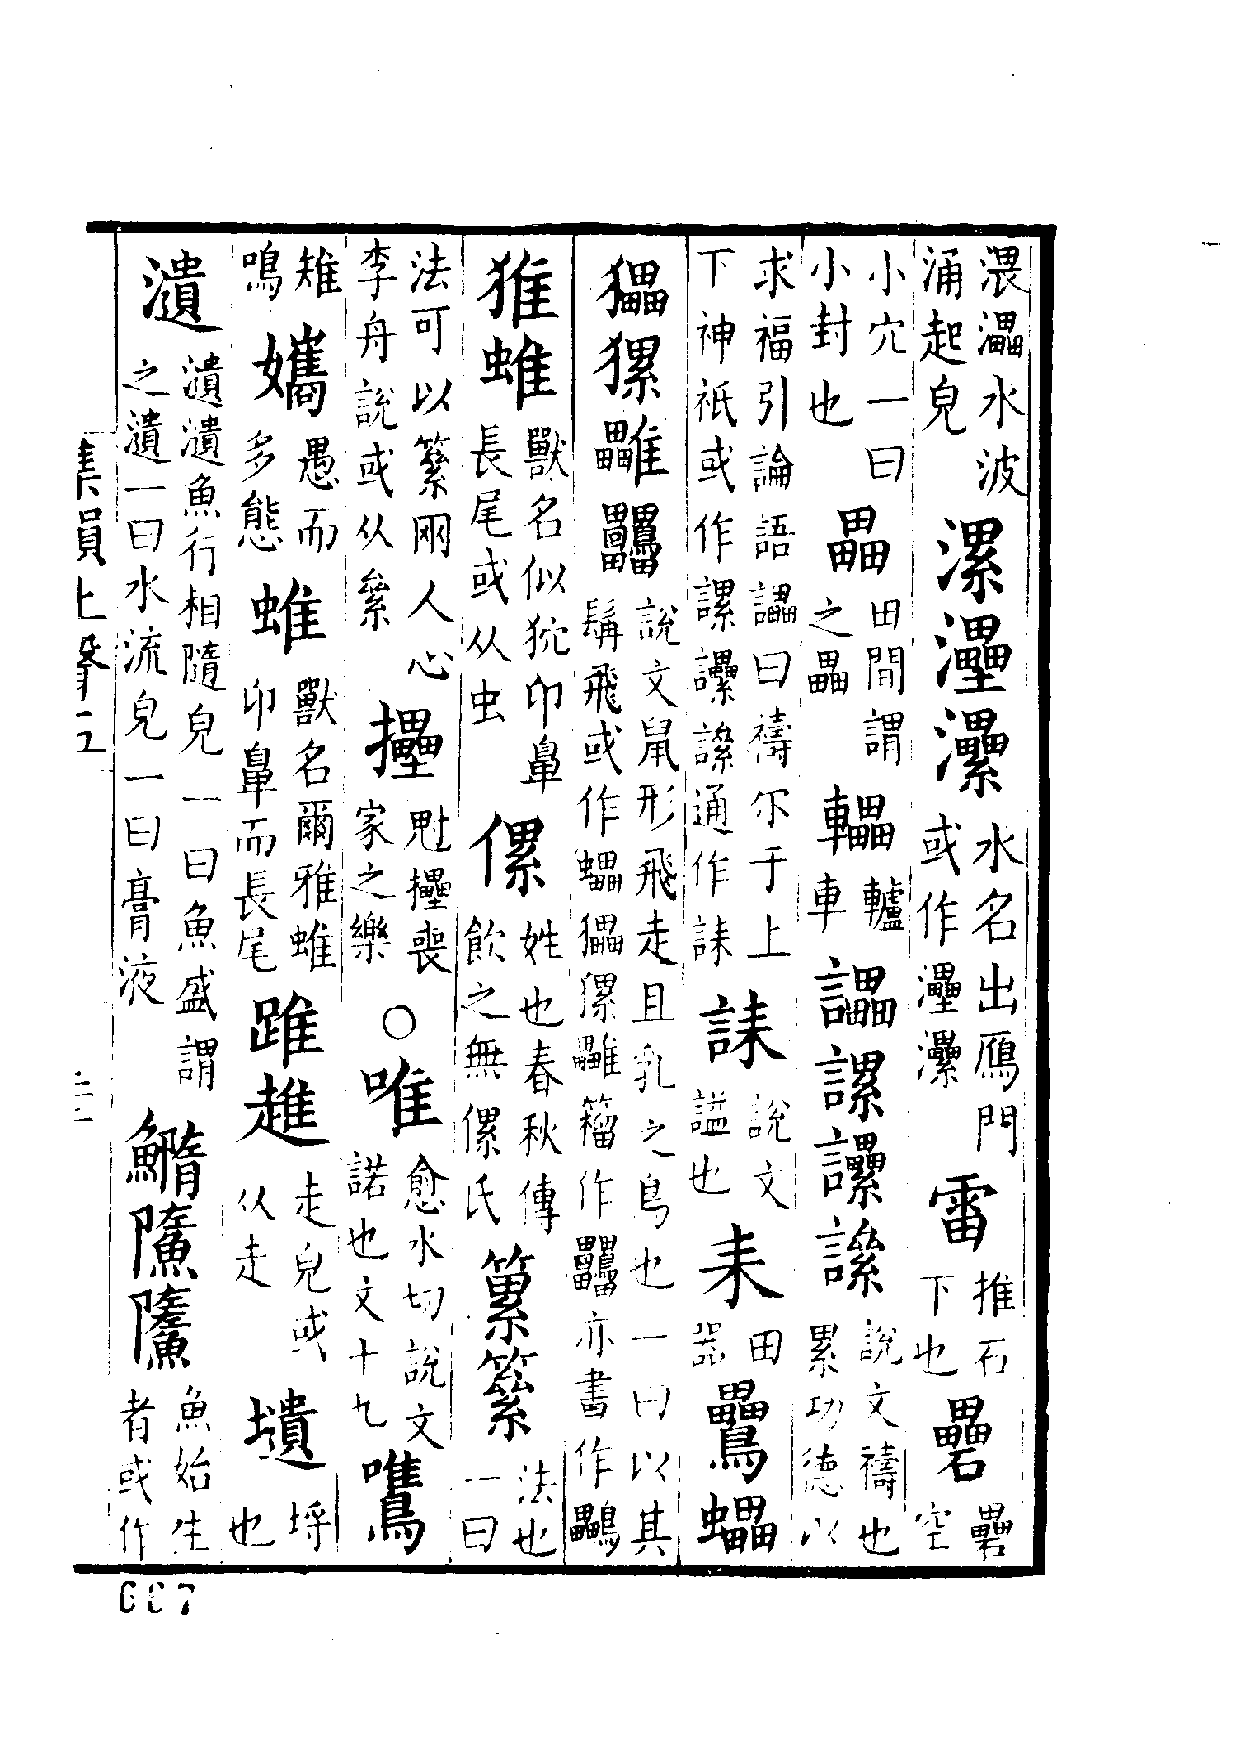 渨㵽水波涌起皃 漯灅灅 水名出鴈門或作灅 雷 推石下也 礨 礨空
小穴一曰小封也 畾 田間謂之畾 轠 轤車 讄 說文禱也累功德以
求福引論語讄曰禱尔于上下神祇或作 通作誄 誄 說文謚也 耒 田器 鸓蠝
說文鼠形飛走且乳之鳥也一曰以其髴飛或作蠝 籀作 亦書作鸓
猚蜼 獸名似狖卬鼻長尾或从虫 傫 姓也春秋傳飲之無傫氏 法也一曰
法可以 罔人心李舟說或从絫 攂喪家之樂 ○ 唯 愈水切說文諾也文十九
雉鳴 愚而多態 蜼 獸名爾雅蜼卬鼻而長尾 踓 走皃或从走 壝 埒也
瀢 瀢瀢魚行相隨皃一曰魚盛謂之瀢一曰水流皃一曰膏液 魚始生者或作
集韻上聲五
667